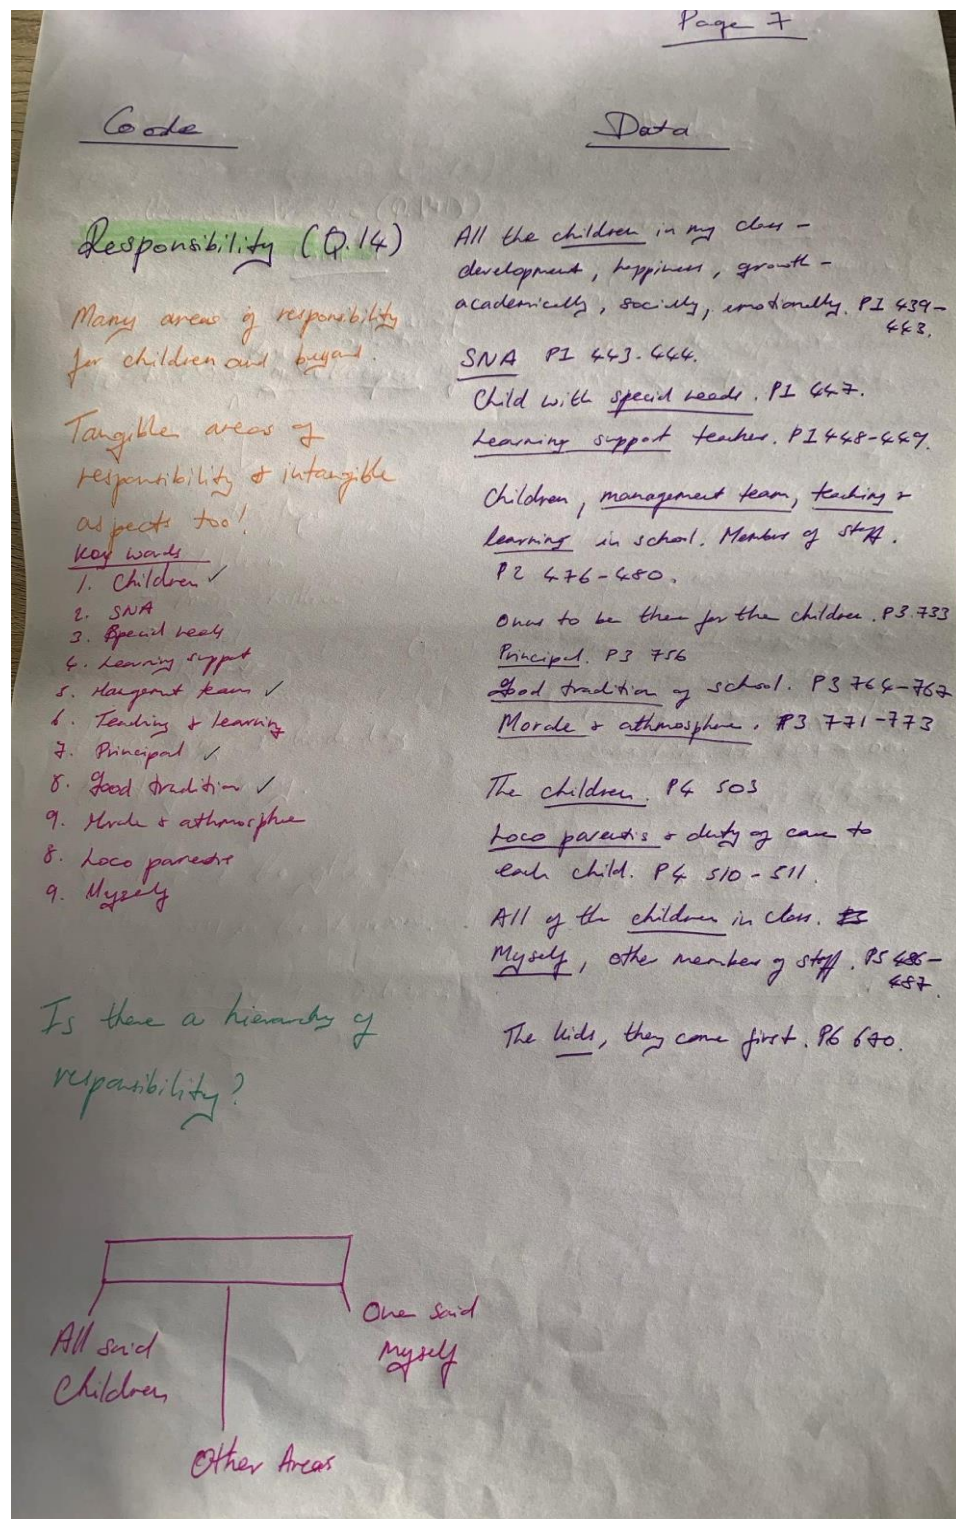 Page 7
Code
Data
Responsibility (Q.14)
Many areas of responsibility
for children and beyond.
Tangible areas of
responsibility & intangible
aspects too!
Key words
1. Children ✓
2. SNA
3. Special needs
4. Learning support
5. Management team ✓
6. Teaching & learning
7. Principal ✓
8. Good tradition ✓
9. Morale & athmosphere
8. Loco parentis
9. Myself
Is there a hierarchy of
responsibility?
All the children in my class -
development, happiness, growth -
academically, socially, emotionally. P1 439-
443.
SNA P1 443-444.
Child with special needs. P1 447.
Learning support teacher. P1 448-449.
Children, management team, teaching &
learning in school. Member of staff.
P2 476-480.
Onus to be there for the children. P3.733
Principal. P3 756
Good tradition of school. P3 764-767
Morale & athmosphere. P3 771-773
The children. P4 503
Loco parentis & duty of care to
each child. P4 510-511.
All of the children in class.
Myself, other members of staff. P5 486-
487.
The kids, they come first. P6 670.
All said
Children
One said
Myself
Other Areas